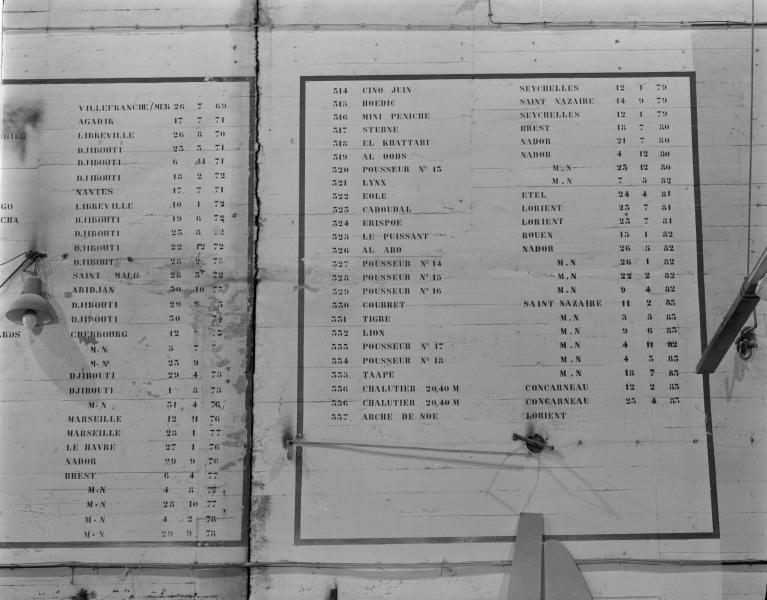 VILLEFRANCHE/MER 26 7 69
AGADIR 17 7 71
LIBREVILLE 26 8 70
DJIBOUTI 23 3 71
DJIBOUTI 6 11 71
DJIBOUTI 18 2 72
NANTES 17 7 71
GO LIBREVILLE 10 1 72
CHA DJIBOUTI 19 6 72
DJIBOUTI 23 8
DJIBOUTI 22 12 72
DJIBOUTI 28 2 73
SAINT MALO 28 3 72
ABIDJAN 30 10 73
DJIBOUTI 29
DJIBOUTI 30
ARDS CHERBOURG 12
M.N 3 7
M.N 23 9
DJIBOUTI 29 4 75
DJIBOUTI 1 8 75
M.N 31 4 76
MARSEILLE 12 11 76
MARSEILLE 28 1 77
LE HAVRE 27 1 76
NADOR 29 9 76
BREST 6 4 77
M.N 4 8 77
M.N 28 10 77
M.N 4 2 78
M.N 29 9 78
314 CINQ JUIN SEYCHELLES 12 1 79
315 HOEDIC SAINT NAZAIRE 14 9 79
316 MINI PENICHE SEYCHELLES 12 1 79
317 STERNE BREST 18 7 80
318 EL KHATTABI NADOR 21 7 80
319 AL QODS NADOR 4 12 80
320 POUSSEUR N° 13 M.N 23 12 80
321 LYNX M.N 7 3 82
322 EOLE ETEL 24 4 81
323 CADOUDAL LORIENT 23 7 81
324 ERISPOE LORIENT 23 7 81
325 LE PUISSANT ROUEN 13 1 82
326 AL ARO NADOR 26 3 82
327 POUSSEUR N° 14 M.N 26 1 82
328 POUSSEUR N° 15 M.N 22 2 82
329 POUSSEUR N° 16 M.N 9 4 82
330 COURBET SAINT NAZAIRE 11 2 83
331 TIGRE M.N 3 3 83
332 LION M.N 9 6 83
333 POUSSEUR N° 17 M.N 4 11 82
334 POUSSEUR N° 18 M.N 4 3 83
335 TAAPE M.N 18 7 83
336 CHALUTIER 20,40 M CONCARNEAU 12 2 83
336 CHALUTIER 20,40 M CONCARNEAU 23 4 83
337 ARCHE DE NOE LORIENT